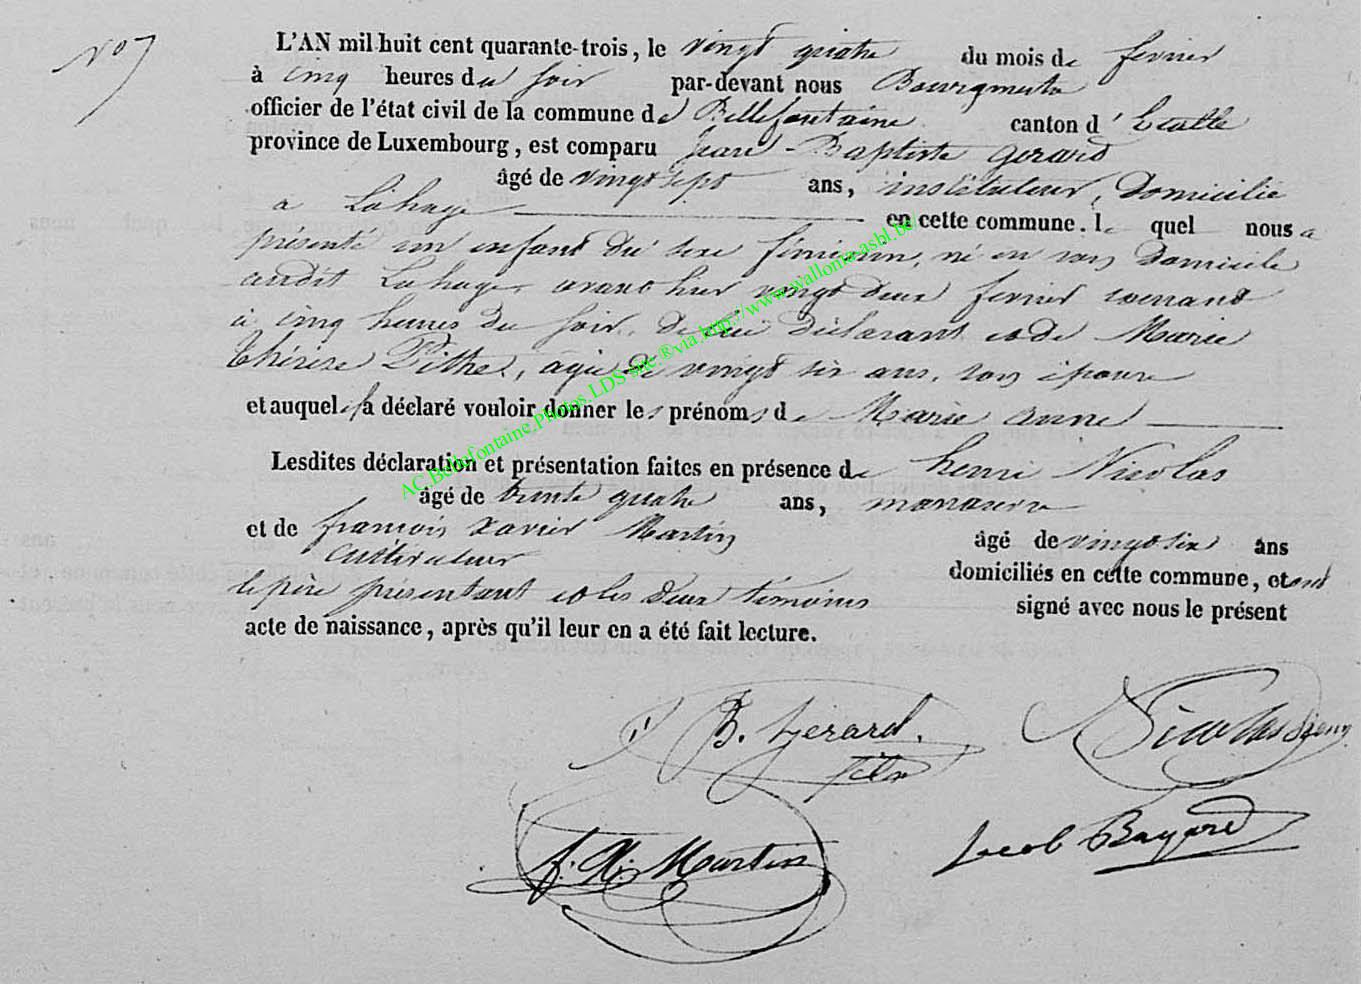 N° 7
L'AN mil huit cent quarante-trois, le vingt quatre du mois de fevrier
à cinq heures du soir par-devant nous Bourgmestre
officier de l'état civil de la commune de Bellefontaine canton d' Etalle
province de Luxembourg, est comparu Jean-Baptiste Gerard
âgé de vingt sept ans, instituteur, domicilié
à Lahage en cette commune. le quel nous a
présenté un enfant du sexe féminin, né en son domicile
audit Lahage avant hier vingt deux fevrier courant
à cinq heures du soir, de lui déclarant et de Marie
Thérèse Pithe, agée de vingt six ans, son épouse
et auquel il a déclaré vouloir donner les prénoms de Marie Anne
Lesdites déclaration et présentation faites en présence de henri Nicolas
âgé de trente quatre ans, manœuvre
et de françois Xavier Martin âgé de vingt six ans
cultivateur domiciliés en cette commune, et ont
le père présentant et les deux témoins signé avec nous le présent
acte de naissance, après qu'il leur en a été fait lecture.
B. Gérard. Nicolas
fils
f. X. Martin Jacob Bayard
AC.Bellefontaine.Photos.LDS site ®via.http://www.wallonia-asbl.be/